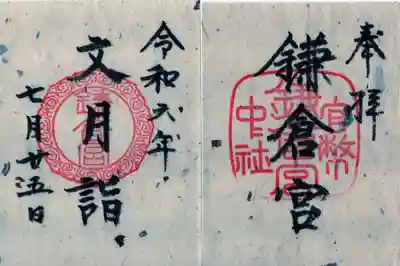 奉拝
鎌倉宮
官幣
鎌倉宮
中社
令和六年
文月詣
七月廿五日
鎌倉宮